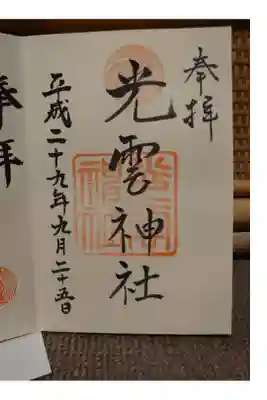 奉拝
光雲神社
平成二十九年九月二十五日
奉拝